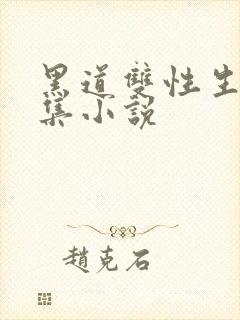 黑道雙性生
集小說
趙克石